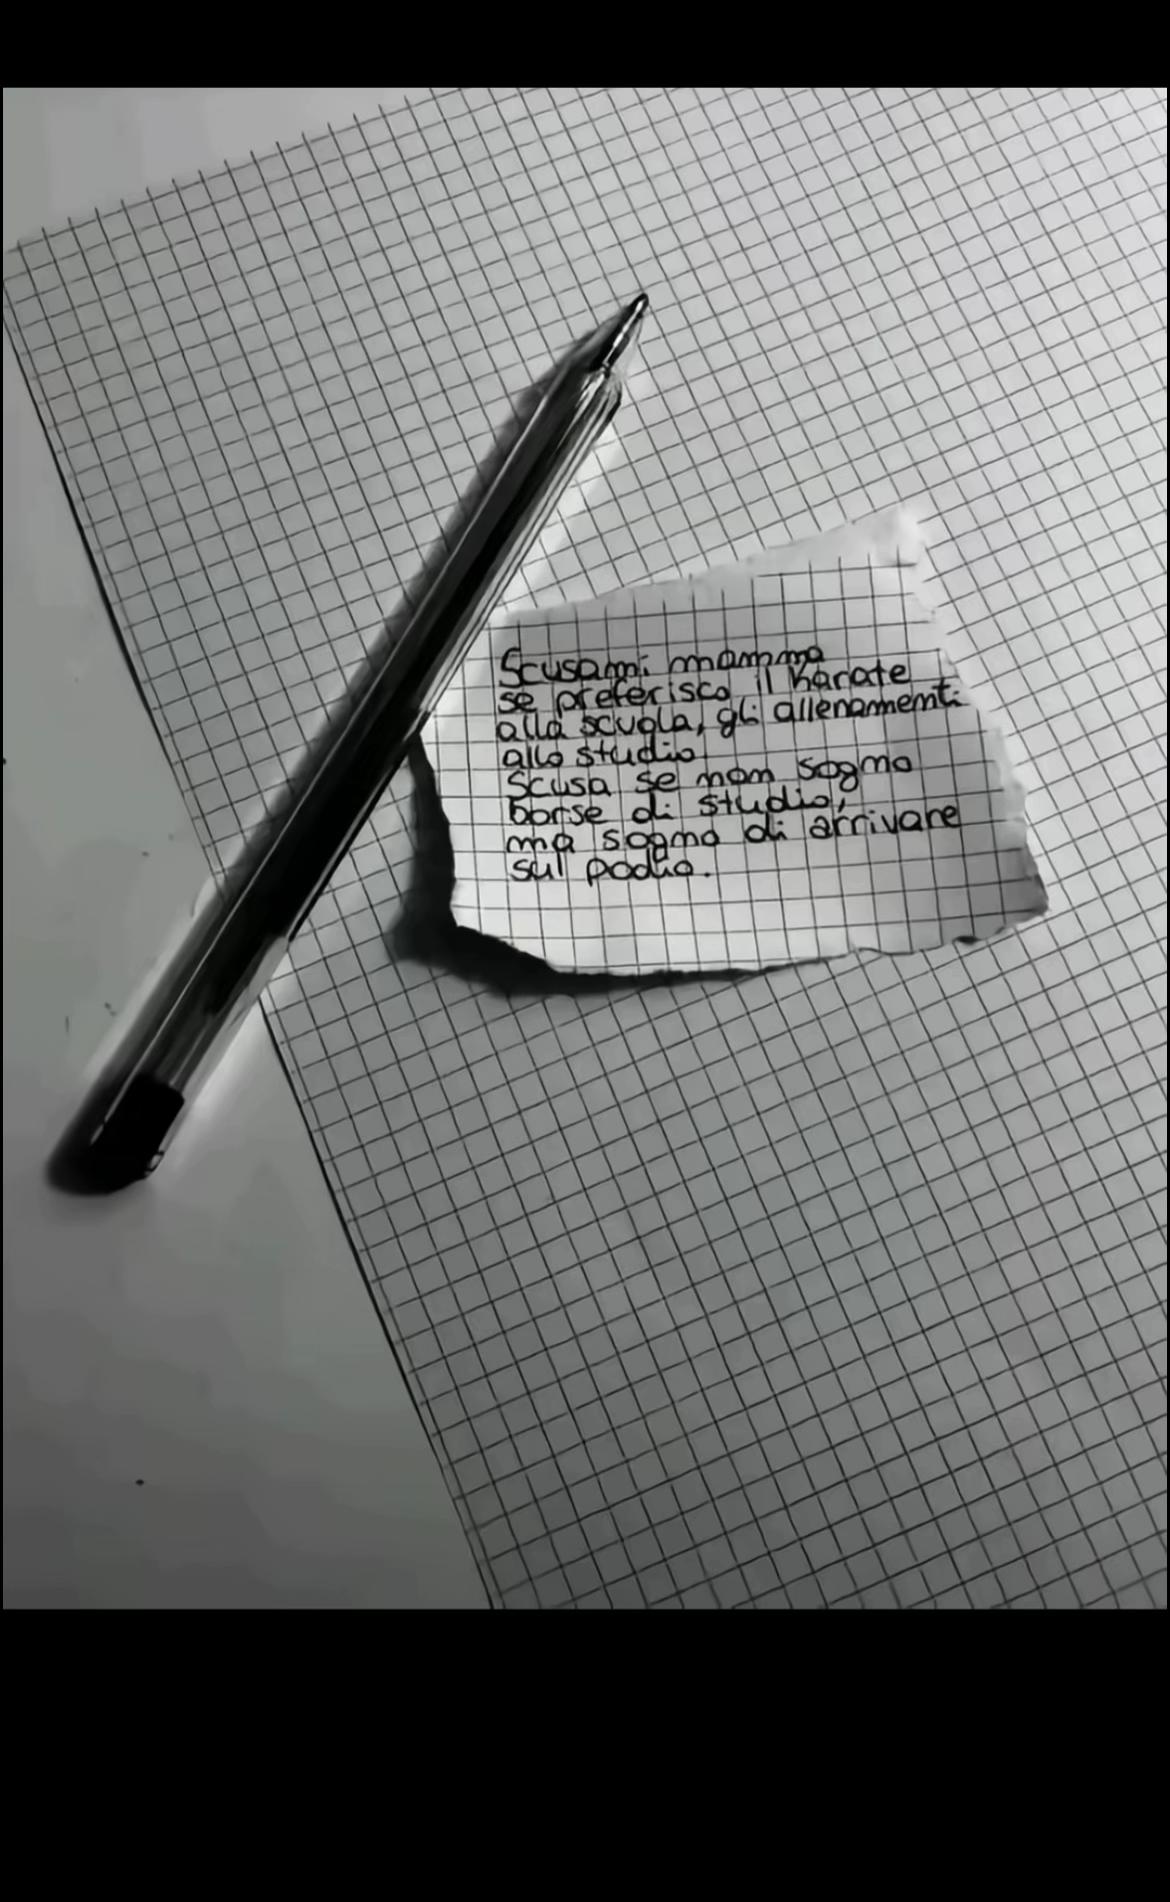 Scusami mamma
se preferisco il karate
alla scuola, gli allenamenti
allo studio.
Scusa se non sogno
borse di studio,
ma sogno di arrivare
sul podio.